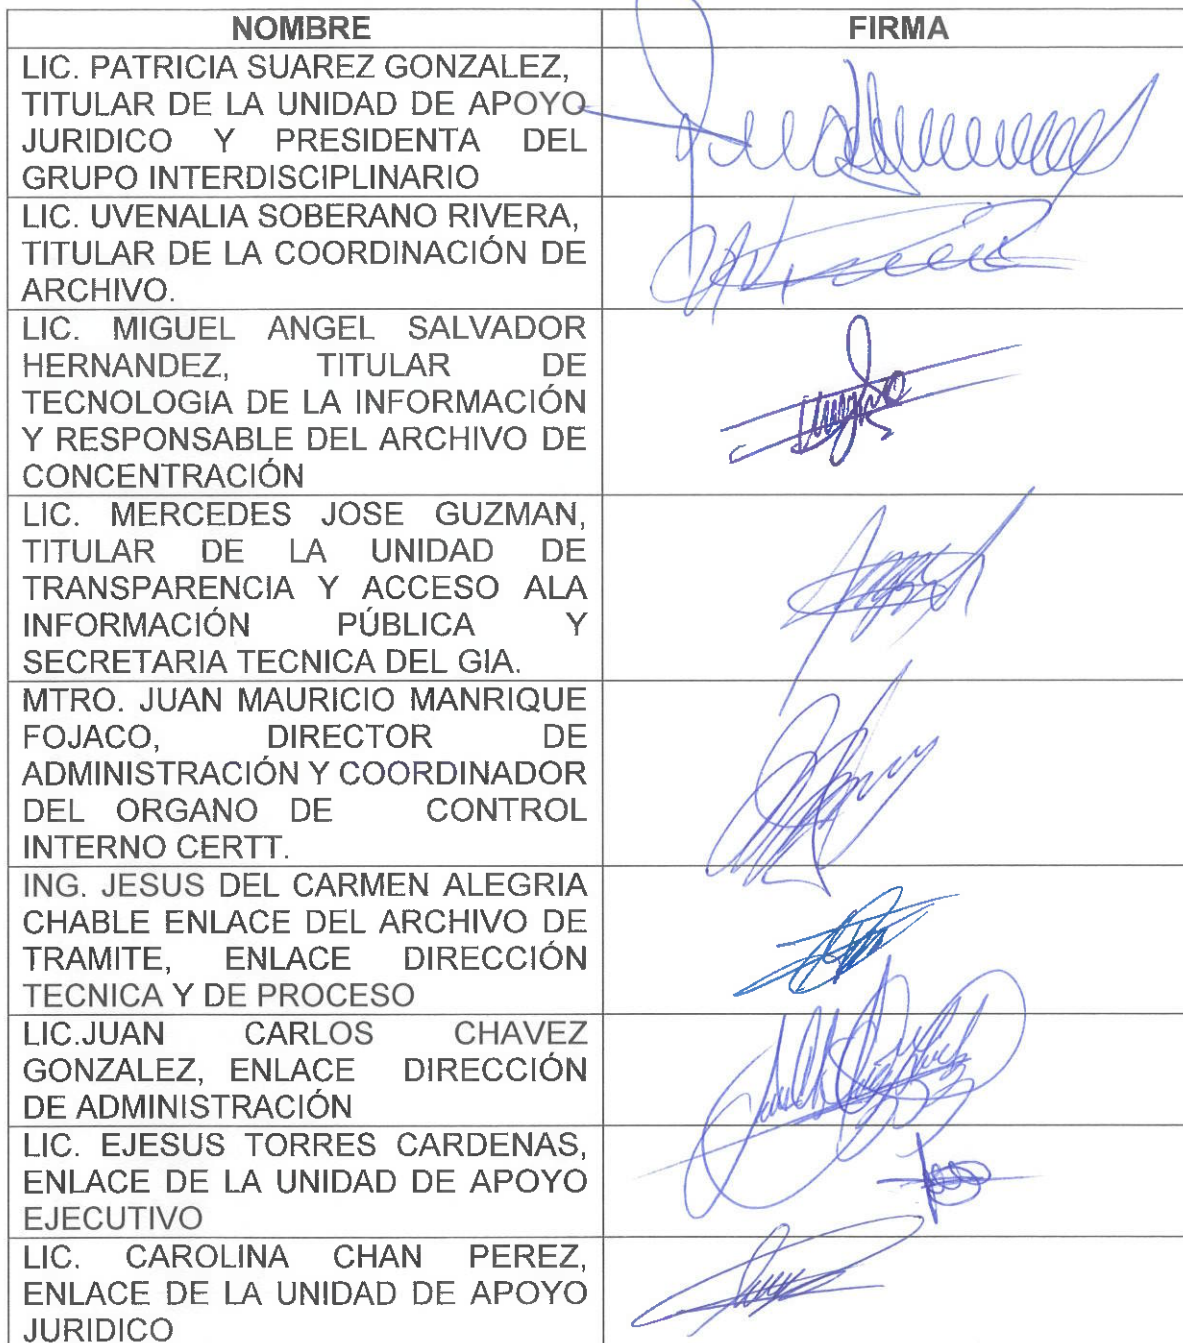 NOMBRE FIRMA
LIC. PATRICIA SUAREZ GONZALEZ,
TITULAR DE LA UNIDAD DE APOYO
JURIDICO Y PRESIDENTA DEL
GRUPO INTERDISCIPLINARIO
LIC. UVENALIA SOBERANO RIVERA,
TITULAR DE LA COORDINACIÓN DE
ARCHIVO.
LIC. MIGUEL ANGEL SALVADOR
HERNANDEZ, TITULAR DE
TECNOLOGIA DE LA INFORMACIÓN
Y RESPONSABLE DEL ARCHIVO DE
CONCENTRACIÓN
LIC. MERCEDES JOSE GUZMAN,
TITULAR DE LA UNIDAD DE
TRANSPARENCIA Y ACCESO ALA
INFORMACIÓN PÚBLICA Y
SECRETARIA TECNICA DEL GIA.
MTRO. JUAN MAURICIO MANRIQUE
FOJACO, DIRECTOR DE
ADMINISTRACIÓN Y COORDINADOR
DEL ORGANO DE CONTROL
INTERNO CERTT.
ING. JESUS DEL CARMEN ALEGRIA
CHABLE ENLACE DEL ARCHIVO DE
TRAMITE, ENLACE DIRECCIÓN
TECNICA Y DE PROCESO
LIC.JUAN CARLOS CHAVEZ
GONZALEZ, ENLACE DIRECCIÓN
DE ADMINISTRACIÓN
LIC. EJESUS TORRES CARDENAS,
ENLACE DE LA UNIDAD DE APOYO
EJECUTIVO
LIC. CAROLINA CHAN PEREZ,
ENLACE DE LA UNIDAD DE APOYO
JURIDICO